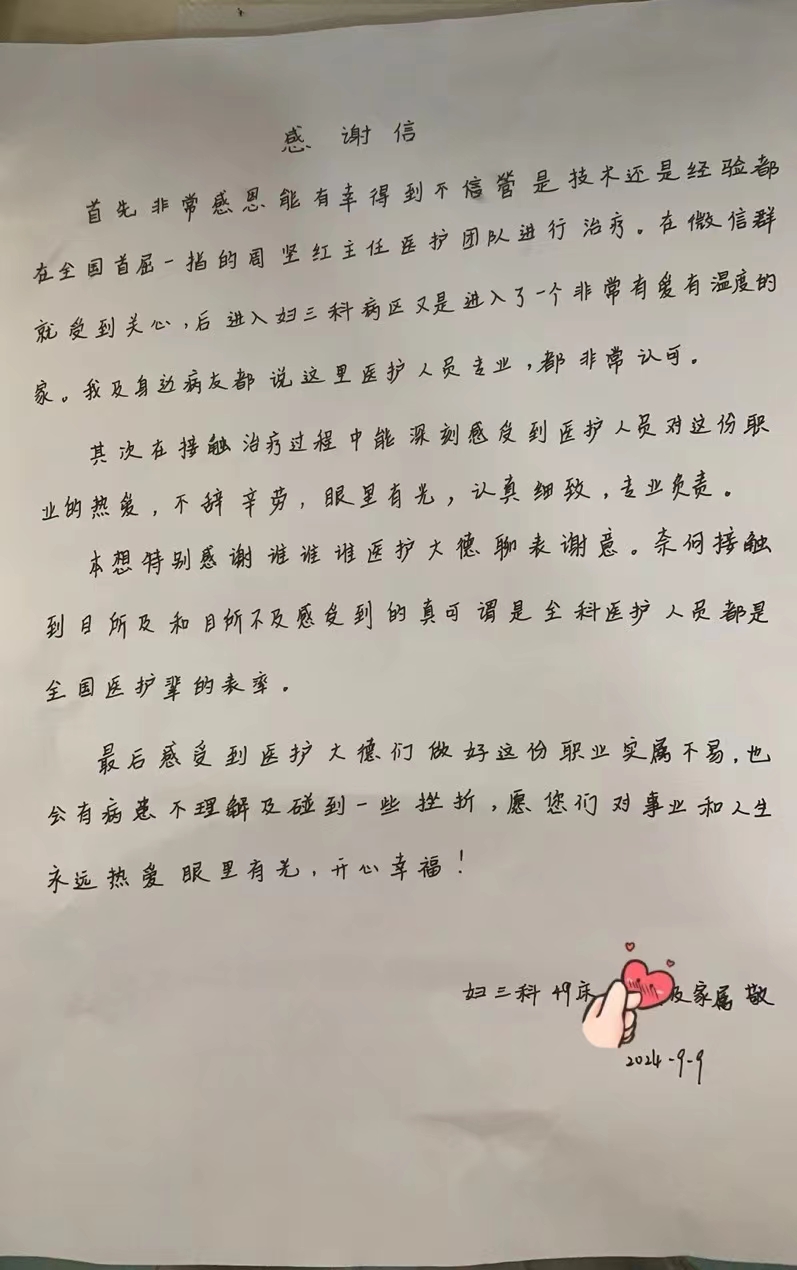 感谢信
首先非常感恩能有幸得到不信管是技术还是经验都
在全国首屈一指的周坚红主任医护团队进行治疗。在微信群
就受到关心,后进入妇三科病区又是进入了一个非常有爱有温度的
家。我及身边病友都说这里医护人员专业,都非常认可。
其次在接触治疗过程中能深刻感受到医护人员对这份职
业的热爱,不辞辛劳,眼里有光,认真细致,专业负责。
本想特别感谢谁谁谁医护大德聊表谢意。奈何接触
到目所及和目所不及感受到的真可谓是全科医护人员都是
全国医护辈的表率。
最后感受到医护大德们做好这份职业实属不易,也
会有病患不理解及碰到一些挫折,愿您们对事业和人生
永远热爱 眼里有光,开心幸福!
妇三科49床 及家属 敬
2024-9-9